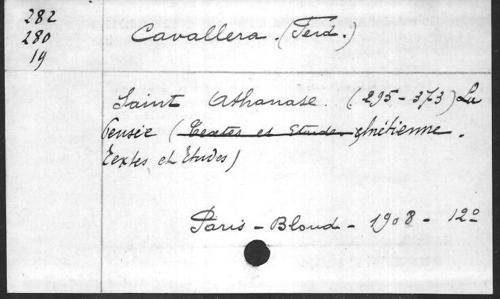 282
280
19
Cavallera. (Ferd.)
Saint Athanase. (295-373) La
Pensée (Textes et Etudes chrétienne.
Textes et Etudes)
Paris - Bloud - 1908 - 12º